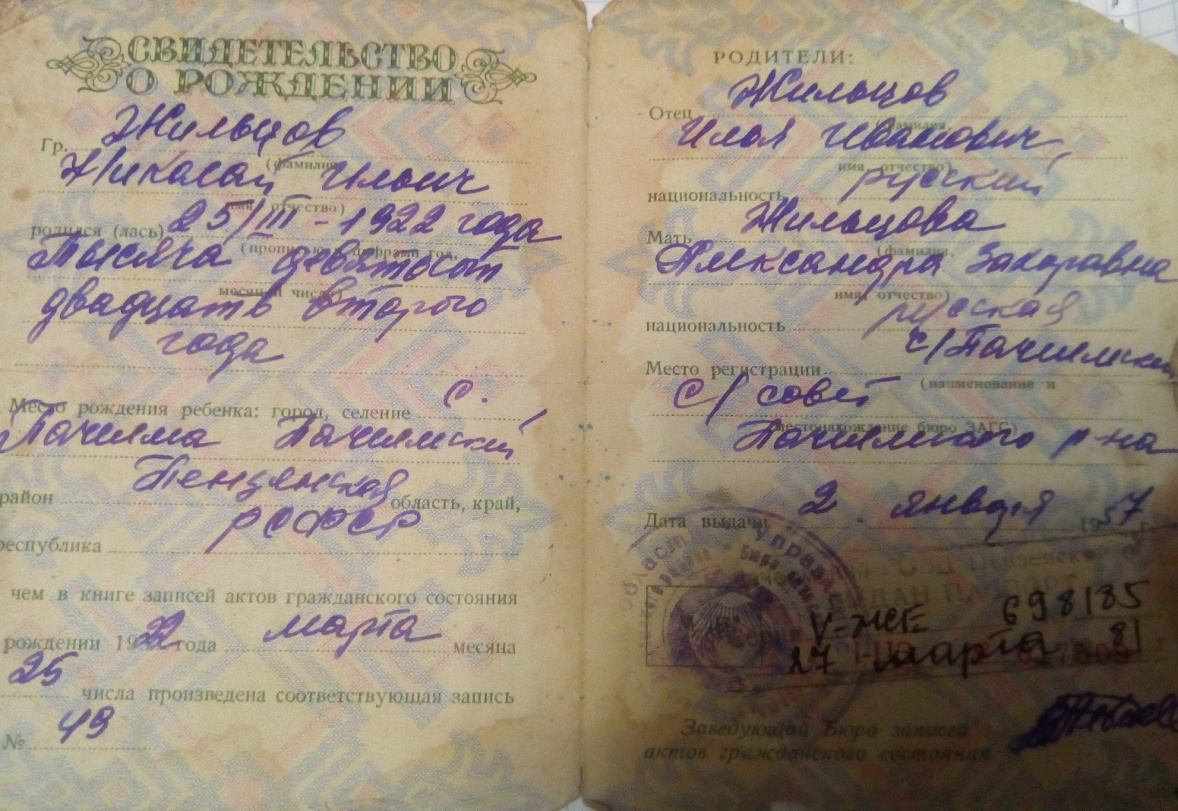 СВИДЕТЕЛЬСТВО
О РОЖДЕНИИ
Гр. Жильцов
(фамилия,
Николай Ильич
имя, отчество)
родился (лась) 25/III - 1922 года
(прописью и цифрами год,
Тысяча девятьсот
месяц и число)
двадцать второго
года
Место рождения ребенка: город, селение с.
Пачелма Пачелмский
район Пензенская область, край,
республика РСФСР
чем в книге записей актов гражданского состояния
рождении 1922 года марта месяца
25 числа произведена соответствующая запись
№ 49
РОДИТЕЛИ:
Отец Жильцов
(фамилия,
Илья Иванович,
имя, отчество)
национальность русский
Мать Жильцова
(фамилия,
Александра Захаровна
имя, отчество)
национальность русская
Место регистрации с/Пачелмский
(наименование и
с/совет
местонахождение бюро ЗАГС)
Пачелмского р-на
Дата выдачи 2 января 1957 г.
V-ЖЕ 698185
27 марта 81
Заведующий Бюро записей
актов гражданского состояния